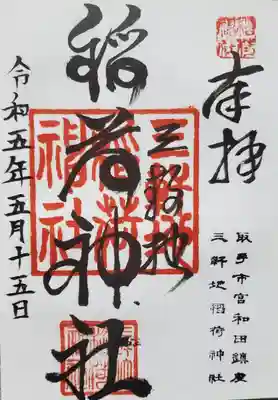 奉拝
取手市宮和田鎮座
三軒地稲荷神社
三軒地
稲荷神社
令和五年五月十五日